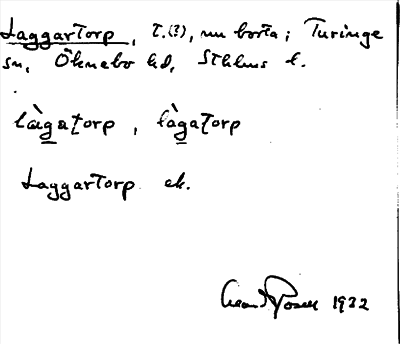 Laggartorp, t.(?), nu borta; Turinge
sn, Öknebo hd, Sthlms l.
làgatorp, làgatorp
Laggartorp ek.
1932